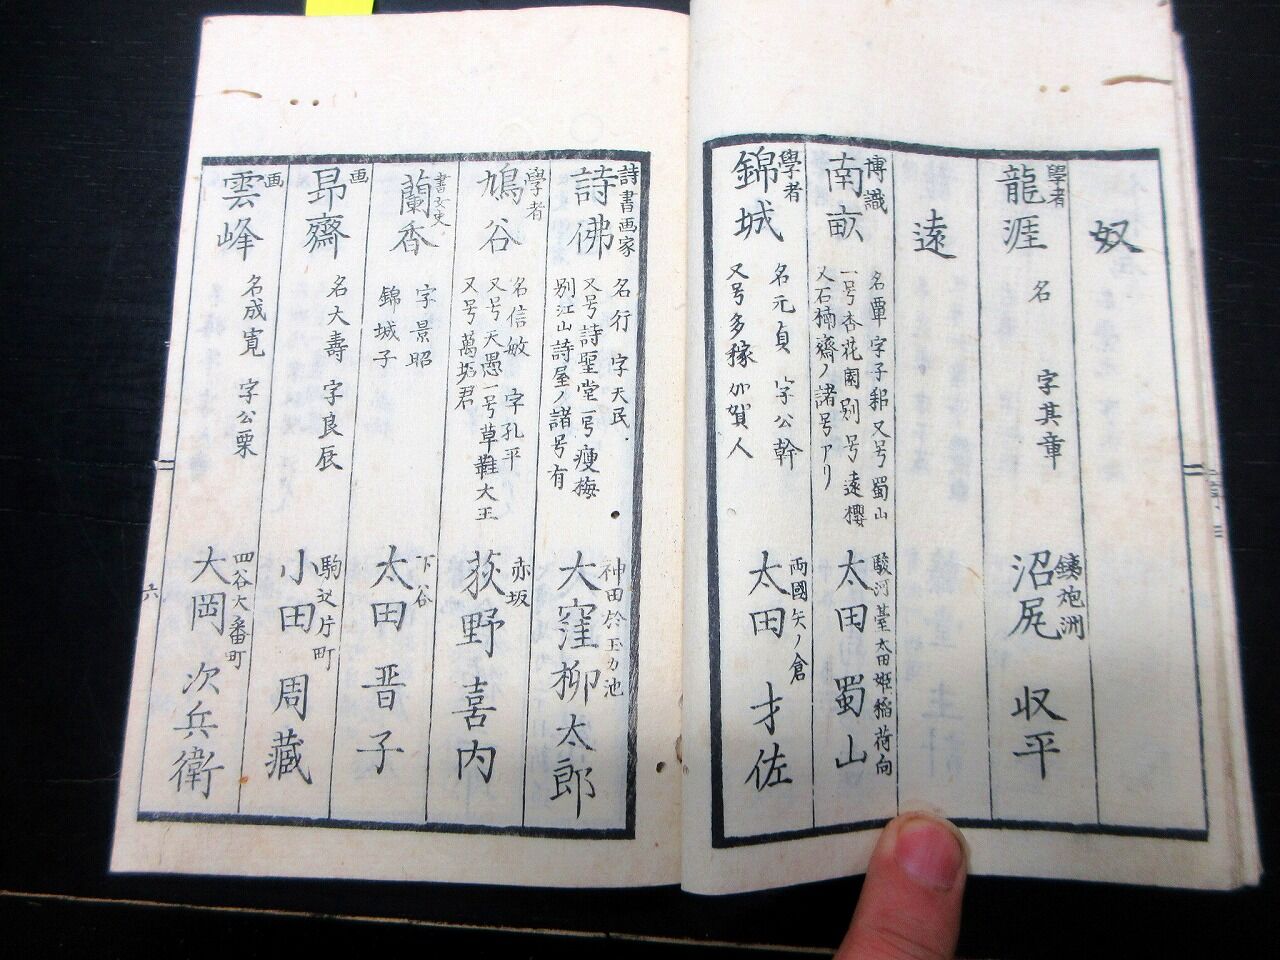 奴
學者
龍涯
名 字其章
鐵炮洲
沼尻 収平
遠
博識
南畝
名覃 字子耜 又号蜀山
一号杏花園 別号遠櫻
又石楠齋ノ諸号アリ
駿河臺太田姫稲荷向
太田蜀山
學者
錦城
名元貞 字公幹
又号多稼 加賀人
両國矢ノ倉
太田才佐
詩書画家
詩佛
名行 字天民
又号詩聖堂 一号痩梅
別江山詩屋ノ諸号有
神田於玉カ池
大窪柳太郎
學者
鳩谷
名信敏 字孔平
又号天愚 一号草鞋大王
又号萬垢君
赤坂
荻野喜内
書女史
蘭香
字景昭
錦城子
下谷
太田晋子
画
昻齋
名大壽 字良辰
駒込片町
小田周藏
画
雲峰
名成寛 字公栗
四谷大番町
大岡次兵衛
六